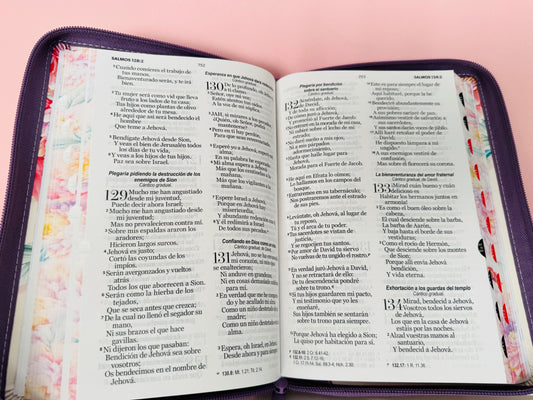 SALMOS 128:2
752
²Cuando comieres el trabajo de
tus manos,
Bienaventurado serás, y te irá
bien.
³Tu mujer será como vid que lleva
fruto a los lados de tu casa;
Tus hijos como plantas de olivo
alrededor de tu mesa.
⁴He aquí que así será bendecido el
hombre
Que teme a Jehová.
⁵Bendígate Jehová desde Sion,
Y veas el bien de Jerusalén todos
los días de tu vida,
⁶Y veas a los hijos de tus hijos.
Paz sea sobre Israel.
Plegaria pidiendo la destrucción de los
enemigos de Sion
Cántico gradual.
129 Mucho me han angustiado
desde mi juventud,
Puede decir ahora Israel;
²Mucho me han angustiado desde
mi juventud;
Mas no prevalecieron contra mí.
³Sobre mis espaldas araron los
aradores;
Hicieron largos surcos.
⁴Jehová es justo;
Cortó las coyundas de los
impíos.
⁵Serán avergonzados y vueltos
atrás
Todos los que aborrecen a Sion.
⁶Serán como la hierba de los
tejados,
Que se seca antes que crezca;
⁷De la cual no llenó el segador su
mano,
Ni sus brazos el que hace
gavillas.
⁸Ni dijeron los que pasaban:
Bendición de Jehová sea sobre
vosotros;
Os bendecimos en el nombre de
Jehová.
Esperanza en que Jehová dará redención
Cántico gradual.
130 De lo profundo, oh Jehová,
a ti clamo.
²Señor, oye mi voz;
Estén atentos tus oídos
A la voz de mi súplica.
³JAH, si mirares a los pecados,
¿Quién, oh Señor, podrá
mantenerse?
⁴Pero en ti hay perdón,
Para que seas reverenciado.
⁵Esperé yo a Jehová, esperó mi
alma;
En su palabra he esperado.
⁶Mi alma espera a Jehová
Más que los centinelas a la
mañana,
Más que los vigilantes a la
mañana.
⁷Espere Israel a Jehová,
Porque en Jehová hay
misericordia,
Y abundante redención con él;
⁸Y él redimirá a Israel
De todos sus pecados.
Confiando en Dios como un niño
Cántico gradual; de David.
131 Jehová, no se ha
envanecido mi corazón, ni mis
ojos se
enaltecieron;
Ni anduve en grandezas,
Ni en cosas demasiado sublimes
para mí.
²En verdad que me he comportado
y he acallado mi alma
Como un niño destetado de su
madre;
Como un niño destetado está mi
alma.
³Espera, oh Israel, en Jehová,
Desde ahora y para siempre.
130.8: Mt. 1.21; Tit. 2.14.
753
SALMOS 134:2
Plegaria por bendición
sobre el santuario
Cántico gradual.
132 Acuérdate, oh Jehová,
de David,
Y de toda su aflicción;
²De cómo juró a Jehová,
Y prometió al Fuerte de Jacob:
³No entraré en la morada de mi casa,
Ni subiré sobre el lecho de mi
estrado;
⁴No daré sueño a mis ojos,
Ni a mis párpados
adormecimiento,
⁵Hasta que halle lugar para
Jehová,
Morada para el Fuerte de Jacob.
⁶He aquí en Efrata lo oímos;
Lo hallamos en los campos del
bosque.
⁷Entraremos en su tabernáculo;
Nos postraremos ante el estrado
de sus pies.
⁸Levántate, oh Jehová, al lugar de
tu reposo,
Tú y el arca de tu poder.
⁹Tus sacerdotes se vistan de
justicia,
Y se regocijen tus santos.
¹⁰Por amor de David tu siervo
No vuelvas de tu ungido el rostro.
¹¹En verdad juró Jehová a David,
Y no se retractará de ello:
De tu descendencia pondré
sobre tu trono.
¹²Si tus hijos guardaren mi pacto,
Y mi testimonio que yo les
enseñaré,
Sus hijos también se sentarán
sobre tu trono para siempre.
¹³Porque Jehová ha elegido a Sion;
La quiso por habitación para sí.
¹⁴Este es para siempre el lugar de
mi reposo;
Aquí habitaré, porque la he
querido.
¹⁵Bendeciré abundantemente su
provisión;
A sus pobres saciaré de pan.
¹⁶Asimismo vestiré de salvación a
sus sacerdotes,
Y sus santos darán voces de júbilo.
¹⁷Allí haré retoñar el poder de
David;
He dispuesto lámpara a mi
ungido.
¹⁸A sus enemigos vestiré de
confusión,
Mas sobre él florecerá su corona.
La bienaventuranza del amor fraternal
Cántico gradual; de David.
133 ¡Mirad cuán bueno y cuán
delicioso es
Habitar los hermanos juntos en
armonía!
²Es como el buen óleo sobre la
cabeza,
El cual desciende sobre la barba,
La barba de Aarón,
Y baja hasta el borde de sus
vestiduras;
³Como el rocío de Hermón,
Que desciende sobre los montes
de Sion;
Porque allí envía Jehová
bendición,
Y vida eterna.
Exhortación a los guardas del templo
Cántico gradual.
134 Mirad, bendecid a Jehová,
Vosotros todos los siervos de
Jehová,
Los que en la casa de Jehová
estáis por las noches.
²Alzad vuestras manos al
santuario,
Y bendecid a Jehová.
132.8-10: 2 Cr. 6.41-42.
132.17: 1 R. 11.36.